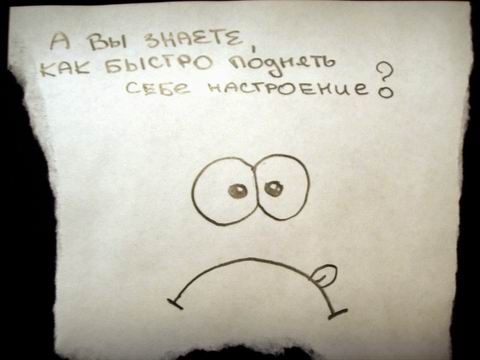 А ВЫ ЗНАЕТЕ,
КАК БЫСТРО ПОДНЯТЬ
СЕБЕ НАСТРОЕНИЕ?